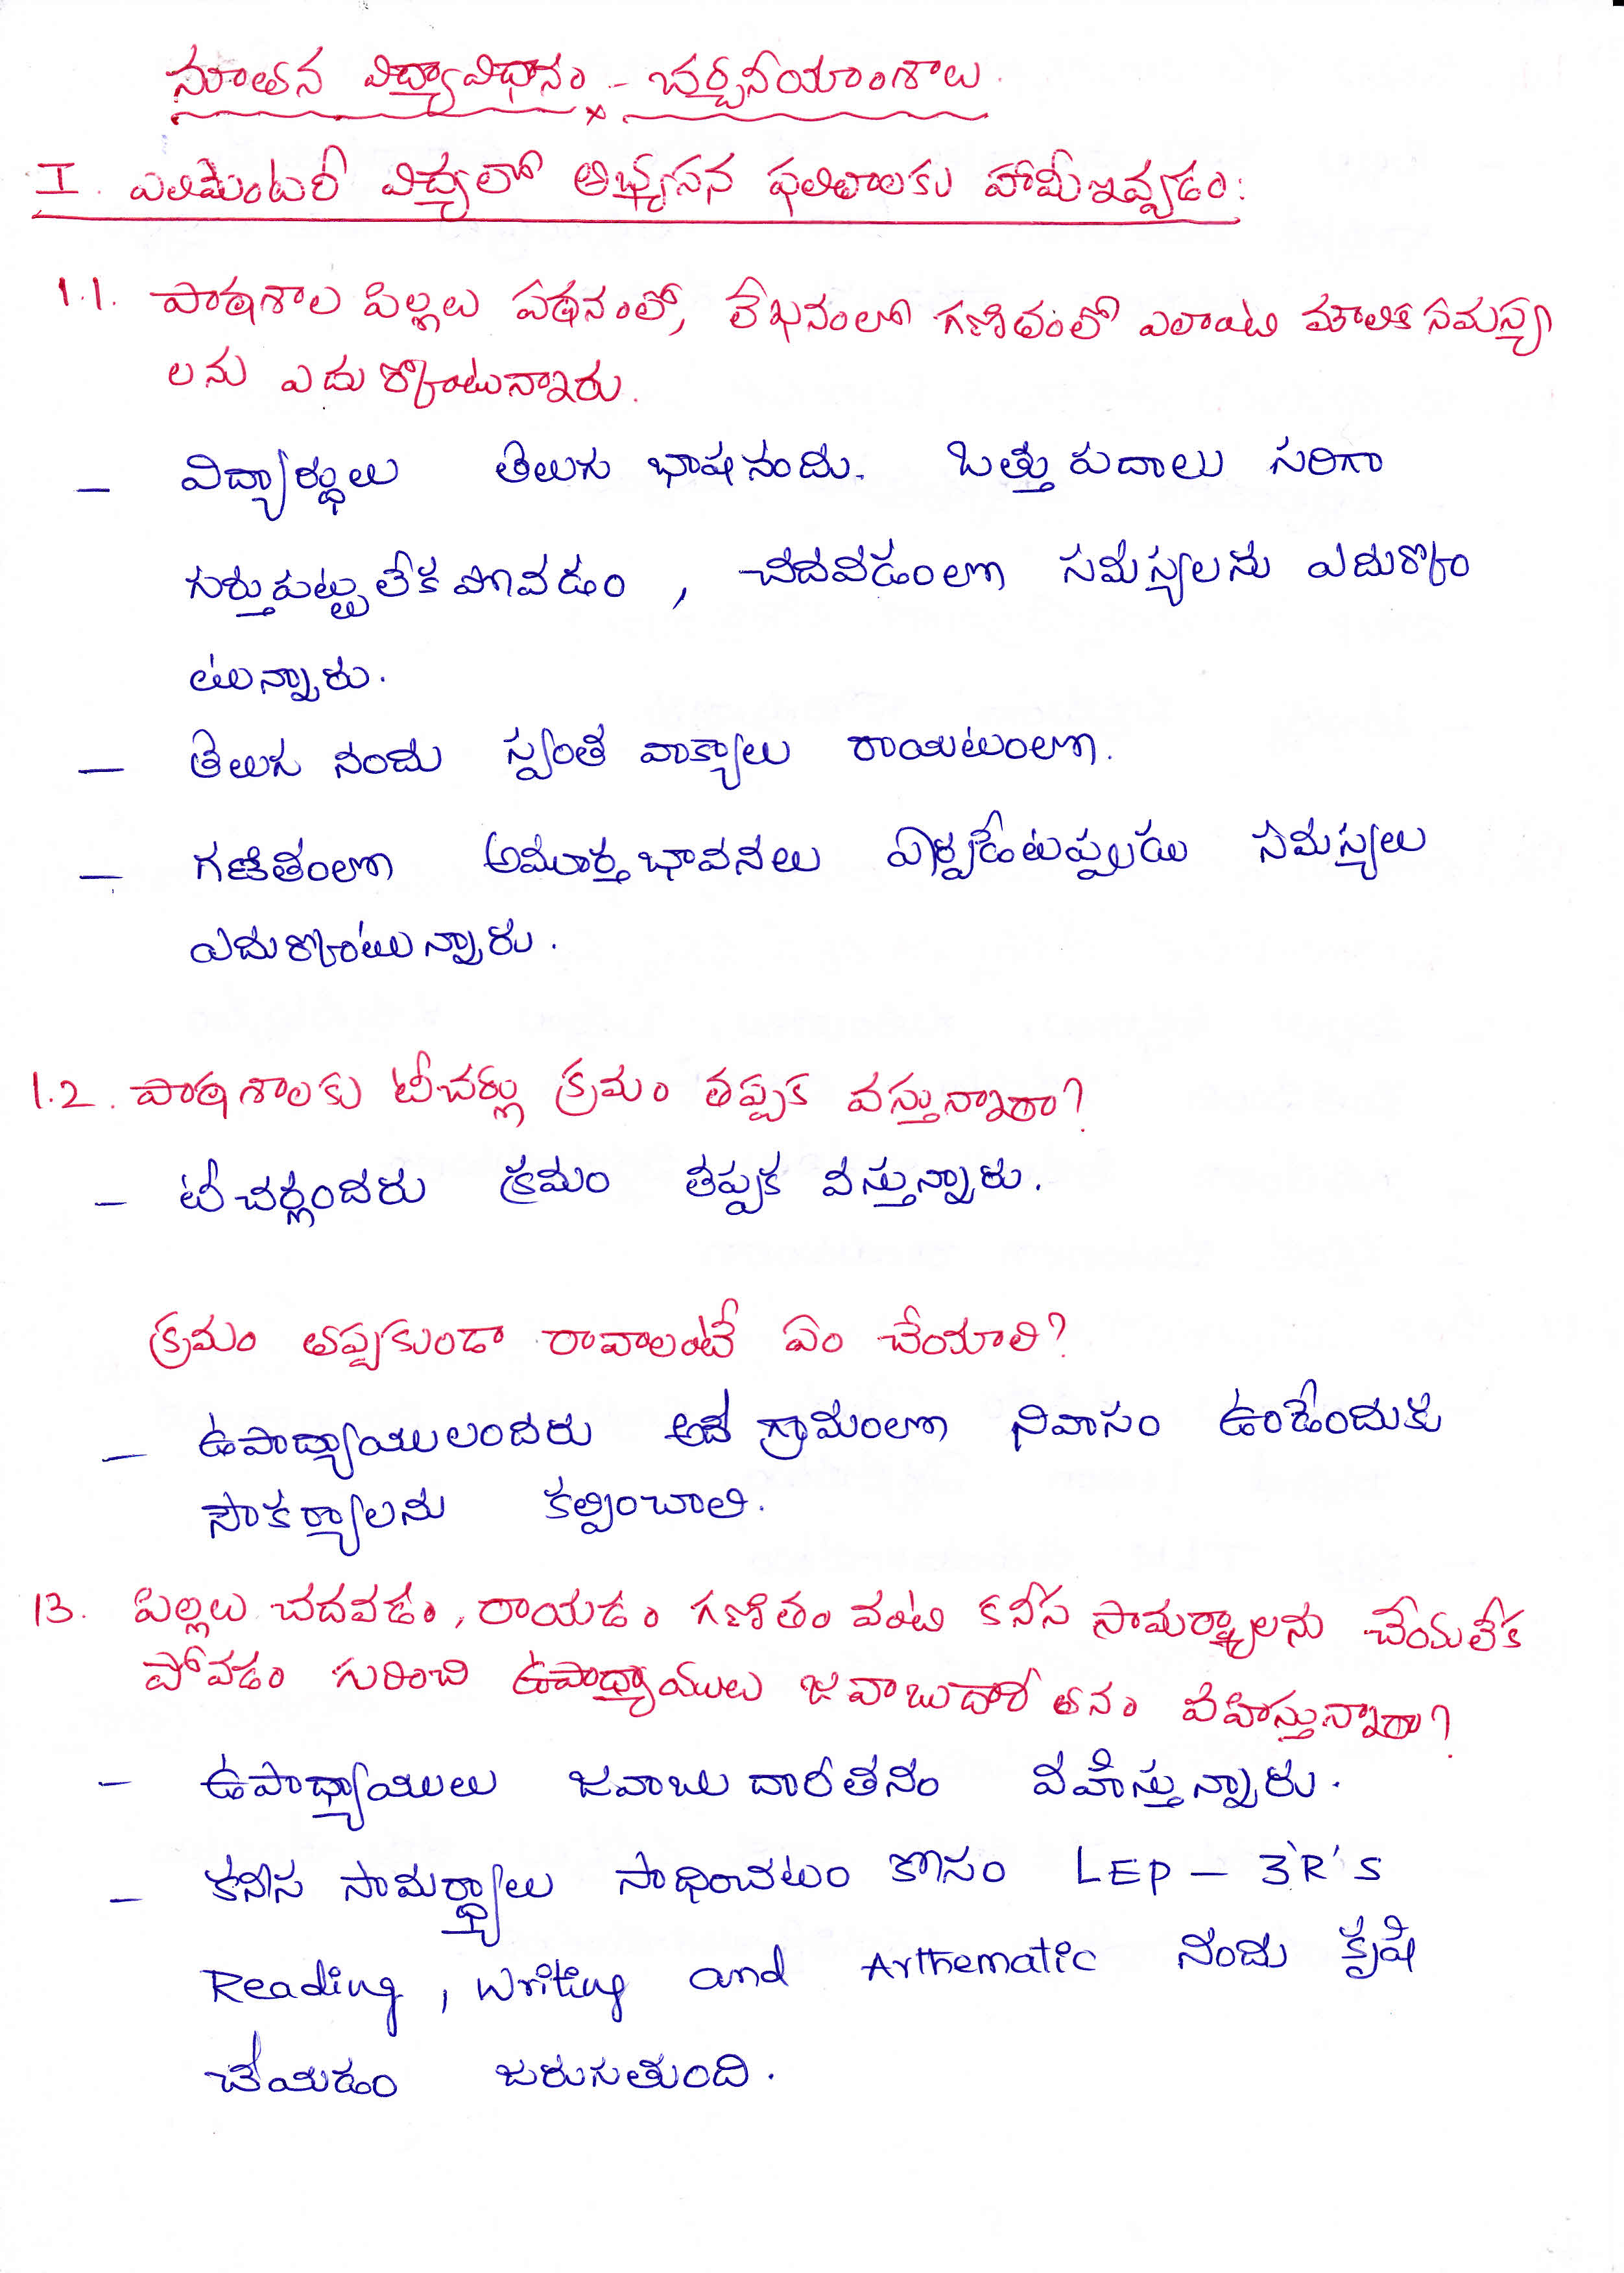 నూతన విద్యావిధానం - చర్చనీయాంశాలు.
I. ఎలిమెంటరీ విద్యలో అభ్యసన ఫలితాలకు హామీఇవ్వడం:
1.1. పాఠశాల పిల్లలు పఠనంలో, లేఖనంలో గణితంలో ఎలాంటి మౌలిక సమస్య
లను ఎదుర్కొంటున్నారు.
- విద్యార్థులు తెలుగు భాషనందు. ఒత్తు పదాలు సరిగా
గుర్తుపట్టులేక పోవడం, చదవడంలో సమస్యలను ఎదుర్కొం
టున్నారు.
- తెలుగు నందు స్వంత వాక్యాలు రాయటంలో.
- గణితంలో అమూర్త భావనలు ఏర్పడేటప్పుడు సమస్యలు
ఎదుర్కొంటున్నారు.
1.2. పాఠశాలకు టీచర్లు క్రమం తప్పక వస్తున్నారా?
- టీచర్లందరు క్రమం తప్పక వస్తున్నారు.
క్రమం తప్పకుండా రావాలంటే ఏం చేయాలి?
- ఉపాద్యాయులందరు అదే గ్రామంలో నివాసం ఉండేందుకు
సౌకర్యాలను కల్పించాలి.
13. పిల్లలు చదవడం, రాయడం గణితం వంటి కనీస సామర్థ్యాలను చేయలేక
పోవడం గురించి ఉపాధ్యాయులు జవాబుదారీ తనం వహిస్తున్నారా?
- ఉపాధ్యాయులు జవాబు దారీతనం వహిస్తున్నారు.
- కనీస సామర్థ్యాలు సాధించటం కోసం LEP - 3'R's
Reading, Writing and Arthematic నందు కృషి
చేయడం జరుగుతుంది.